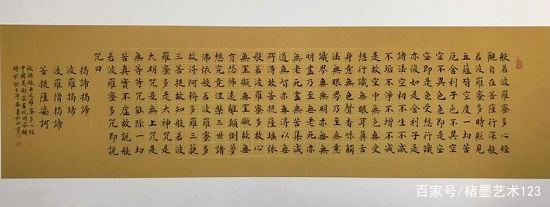 般若波羅蜜多心經
觀自在菩薩行深般
若波羅蜜多時照見
五蘊皆空度一切苦
厄舍利子色不異空
空不異色色即是空
空即是色受想行識
亦復如是舍利子是
諸法空相不生不滅
不垢不淨不增不減
是故空中無色無受
想行識無眼耳鼻舌
身意無色聲香味觸
法無眼界乃至無意
識界無無明亦無無
明盡乃至無老死亦
無老死盡無苦集滅
道無智亦無得以無
所得故菩提薩埵依
般若波羅蜜多故心
無罣礙無罣礙故無
有恐怖遠離顛倒夢
想究竟涅槃三世諸
佛依般若波羅蜜多
故得阿耨多羅三藐
三菩提故知般若波
羅蜜多是大神咒是
大明咒是無上咒是
無等等咒能除一切
苦真實不虛故說般
若波羅蜜多咒即說
咒曰
揭諦揭諦
波羅揭諦
波羅僧揭諦
菩提薩婆訶
般若波羅蜜多心經
百家号/楮墨艺术123